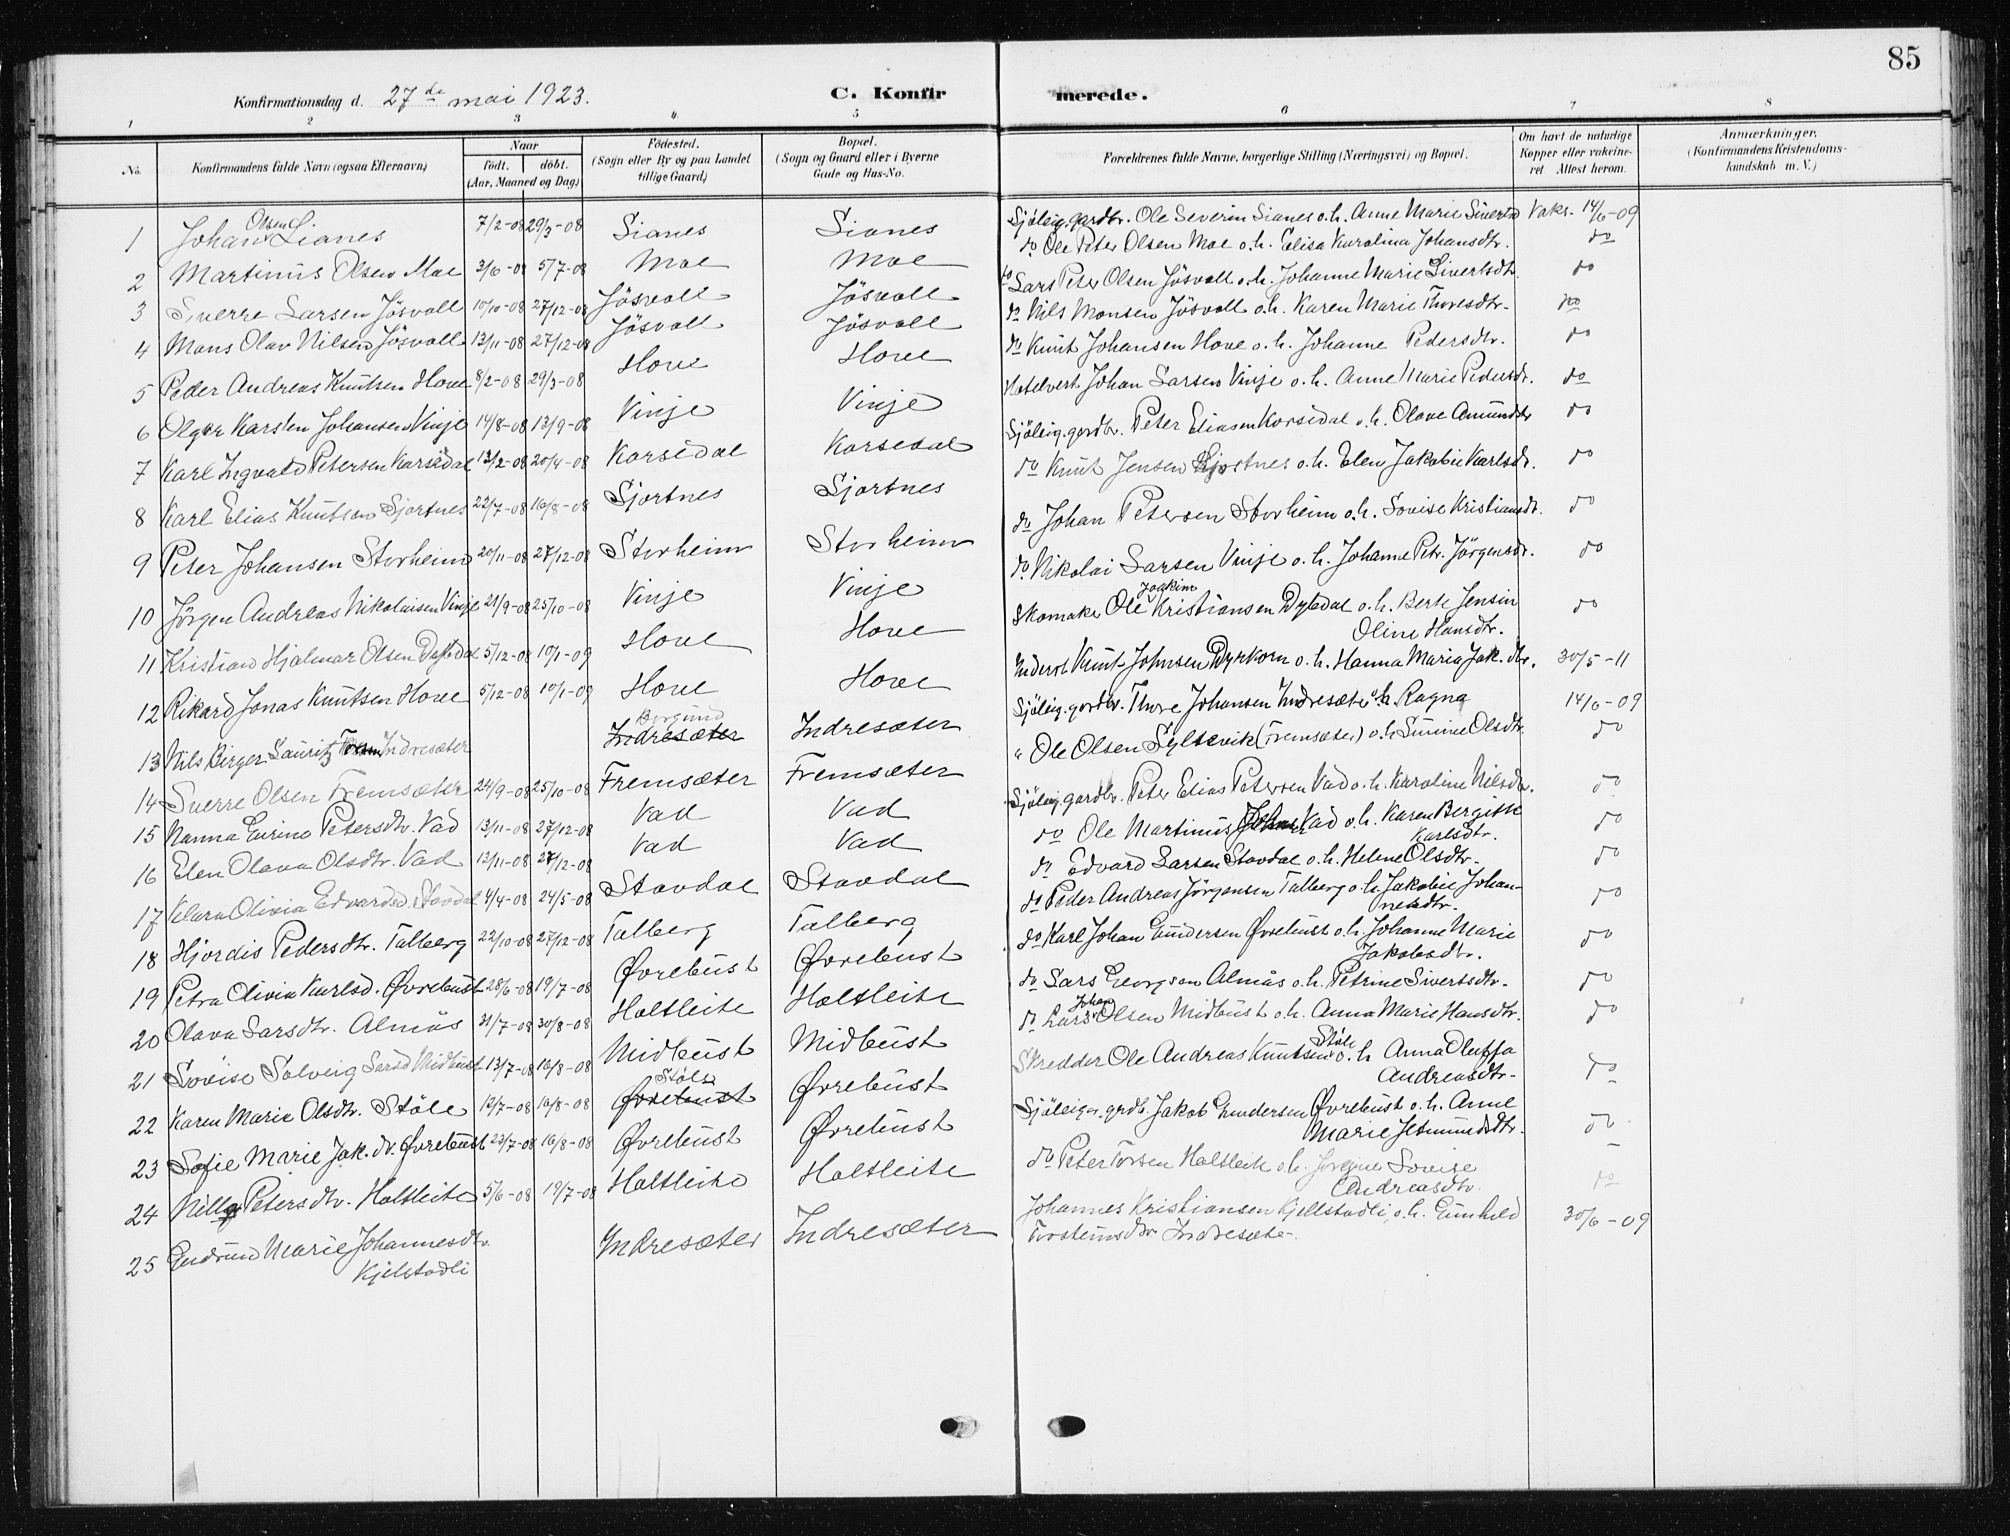 85
Konfirmationsdag d. 27de mai 1923. C. Konfir merede.
1 2 3 4. 5 6 7 8
No. Konfirmandens fulde Navn (ogsaa Efternavn) Naar født. døbt. (Aar, Maaned og Dag) Fødested. (Sogn eller By og paa Landet tillige Gaard) Bopæl. (Sogn og Gaard eller i Byerne Gade og Hus-No. Forældrenes fulde Navne, borgerlige Stilling (Næringsvei) og Bopæl. Om havt de naturlige Kopper eller vakcineret. Attest herom. Anmærkninger. (Konfirmandens Kristendomskundskab m. V.)
1 Johan Olsen Lianes 7/2-08 29/3-08 Lianes Lianes Sjöleig. gardbr. Ole Severin Lianes o.h. Anne Marie Sivertsd Vaks. 14/6-09
2 Martinus Olsen Moe 3/6-08 5/7-08 Moe Moe do Ole Peter Olsen Moe o.h. Elisa Karolina Johansdtr. do
3 Sverre Larsen Jösvoll 10/10-08 27/12-08 Jösvoll Jösvoll do Lars Peter Olsen Jösvoll o.h. Johanne Marie Sivertsdtr. do
4 Mons Olav Nilsen Jösvoll 13/11-08 27/12-08 Jösvoll Jösvoll do Nils Monsen Jösvoll o.h. Karen Marie Thoresdtr. do
5 Peder Andreas Knutsen Hove 8/2-08 29/3-08 Hove Hove do Knut Johansen Hove o.h. Johanne Pedersdtr. do
6 Olger Karsten Johansen Vinje 14/8-08 13/9-08 Vinje Vinje Hotelvert Johan Larsen Vinje o.h. Anne Marie Pedersdr. do
7 Karl Ingvald Petersen Korsedal 13/2-08 20/4-08 Korsedal Korsedal Sjöleig. gardbr. Peter Eliasen Korsedal o.h. Olave Amundsdtr do
8 Karl Elias Knutsen Ljortnes 22/7-08 16/8-08 Ljortnes Ljortnes do Knut Jensen Ljostnes o.h. Elen Jakobie Karlsdr. do
9 Peter Johansen Storheim 20/11-08 27/12-08 Storheim Storheim do Johan Petersen Storheim o.h. Lovise Kristiansdr. do
10 Jörgen Andreas Nikolaisen Vinje 21/9-08 25/10-08 Vinje Vinje do Nikolai Larsen Vinje o.h. Johanne Petr. Jörgensdr. do
11 Kristian Hjalmar Olsen Dybdal 5/12-08 10/1-09 Hove Hove Skomaker Ole Joakim Kristiansen Dybdal o.h. Berte Jensin Oline Hansdtr. do
12 Rikard Jonas Knutsen Hove 5/12-08 10/1-09 Hove Hove Knut Johnsen Dyrkorn o.h. Hanna Maria Jak. dtr. 30/5-11
13 Nils Birger Lauritz Indresæter Borgund Indresæter Indresæter Sjöleig. gardbr. Thore Johansen Indresæter o.h. Ragna 14/6-09
14 Sverre Olsen Fremsæter 24/9-08 25/10-08 Fremsæter Fremsæter " Ole Olsen Syltevik (Fremsæter) o.h. Olsdtr. do
15 Nanna Petersdtr. Vad 13/11-08 27/12-08 Vad Vad Sjöleig. gardbr. Peter Elias Petersen Vad o.h. Karoline Nilsdtr. do
16 Elen Olava Olsdtr. Vad 12/11-08 27/12-08 Vad Vad do Ole Martinus Vad o.h. Karen Bergitte Karlsdtr. do
17 Klara Olivia Edvardsd. Stavdal 4/4-08 24/5-08 Stavdal Stavdal do Edvard Larsen Stavdal o.h. Helene Olsdtr. do
18 Hjördis Pedersdtr. Talberg 22/10-08 27/12-08 Talberg Talberg do Peder Andreas Jörgensen Talberg o.h. Jakobie Johannesdtr. do
19 Petra Olivia Karlsd. Øvrebust 28/6-08 19/7-08 Øvrebust Øvrebust do Karl Johan Gundersen Øvrebust o.h. Johanne Marie Jakobsdtr. do
20 Olava Larsdtr. Almås 31/7-08 30/8-08 Holtleite Holtleite do Lars Georgsen Almås o.h. Petrine Sivertsdtr. do
21 Lovise Solveig Larsd Midbust 13/7-08 16/8-08 Midbust Midbust do Lars Johan Olsen Midbust o.h. Anna Marie Hansdtr. do
22 Karen Marie Olsdtr. Stöle 12/7-08 16/8-08 Stöle Øvrebust Øvrebust Skredder Ole Andreas Knutsen Støle o.h. Anna Oluffa Andreasdtr. do
23 Sofie Marie Jak. dr. Øvrebust 23/7-08 16/8-08 Øvrebust Øvrebust Sjöleig. grdb. Jakob Gundersen Øvrebust o.h. Anne Marie Jetmundsdtr. do
24 Nilla Petersdtr. Holtleite 5/6-08 19/7-08 Holtleite Holtleite do Peter Torsen Holtleite o.h. Jorgine Lovise Andreasdtr. do
25 Gudrun Marie Johannesdtr. Kjelstadli Indresæter Indresæter Johannes Kristiansen Kjellstadli o.h. Gunhild Torsteinsdtr Indresæter. 30/6-09